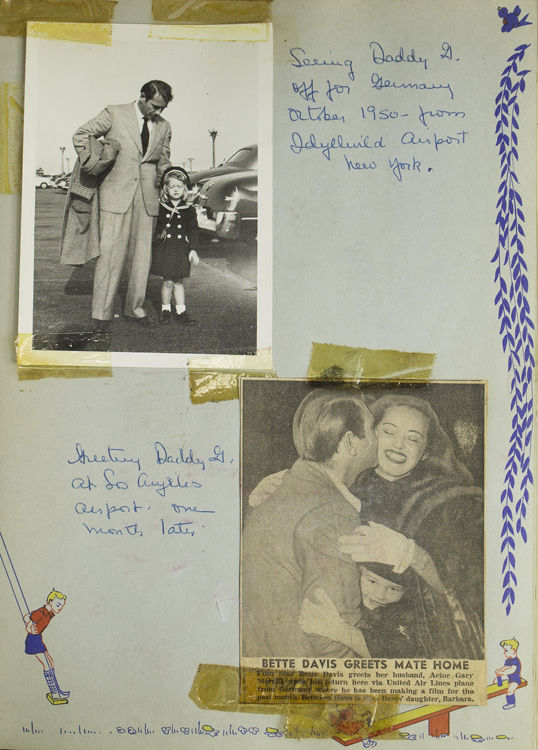 Seeing Daddy G.
off for Germany
October 1950 - from
Idyllwild Airport
New York.
Greeting Daddy G.
at Los Angeles
airport. one
month later.
BETTE DAVIS GREETS MATE HOME
Film Star Bette Davis greets her husband, Actor Gary
Merrill upon his return here via United Air Lines plane
from Germany where he has been making a film for the
past month. Between them is Miss Davis' daughter, Barbara.